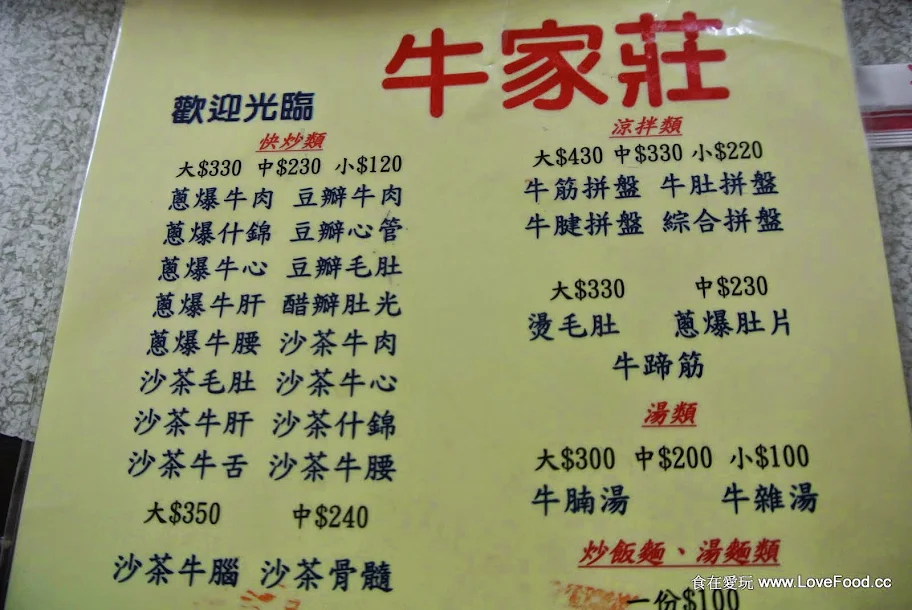 牛家莊
歡迎光臨
快炒類
大$330 中$230 小$120
蔥爆牛肉 豆瓣牛肉
蔥爆什錦 豆瓣心管
蔥爆牛心 豆瓣毛肚
蔥爆牛肝 醋瓣肚光
蔥爆牛腰 沙茶牛肉
沙茶毛肚 沙茶牛心
沙茶牛肝 沙茶什錦
沙茶牛舌 沙茶牛腰
大$350 中$240
沙茶牛腦 沙茶骨髓
涼拌類
大$430 中$330 小$220
牛筋拼盤 牛肚拼盤
牛腱拼盤 綜合拼盤
大$330 中$230
燙毛肚 蔥爆肚片
牛蹄筋
湯類
大$300 中$200 小$100
牛腩湯 牛雜湯
炒飯麵、湯麵類
一份$100
食在愛玩 www.LoveFood.cc